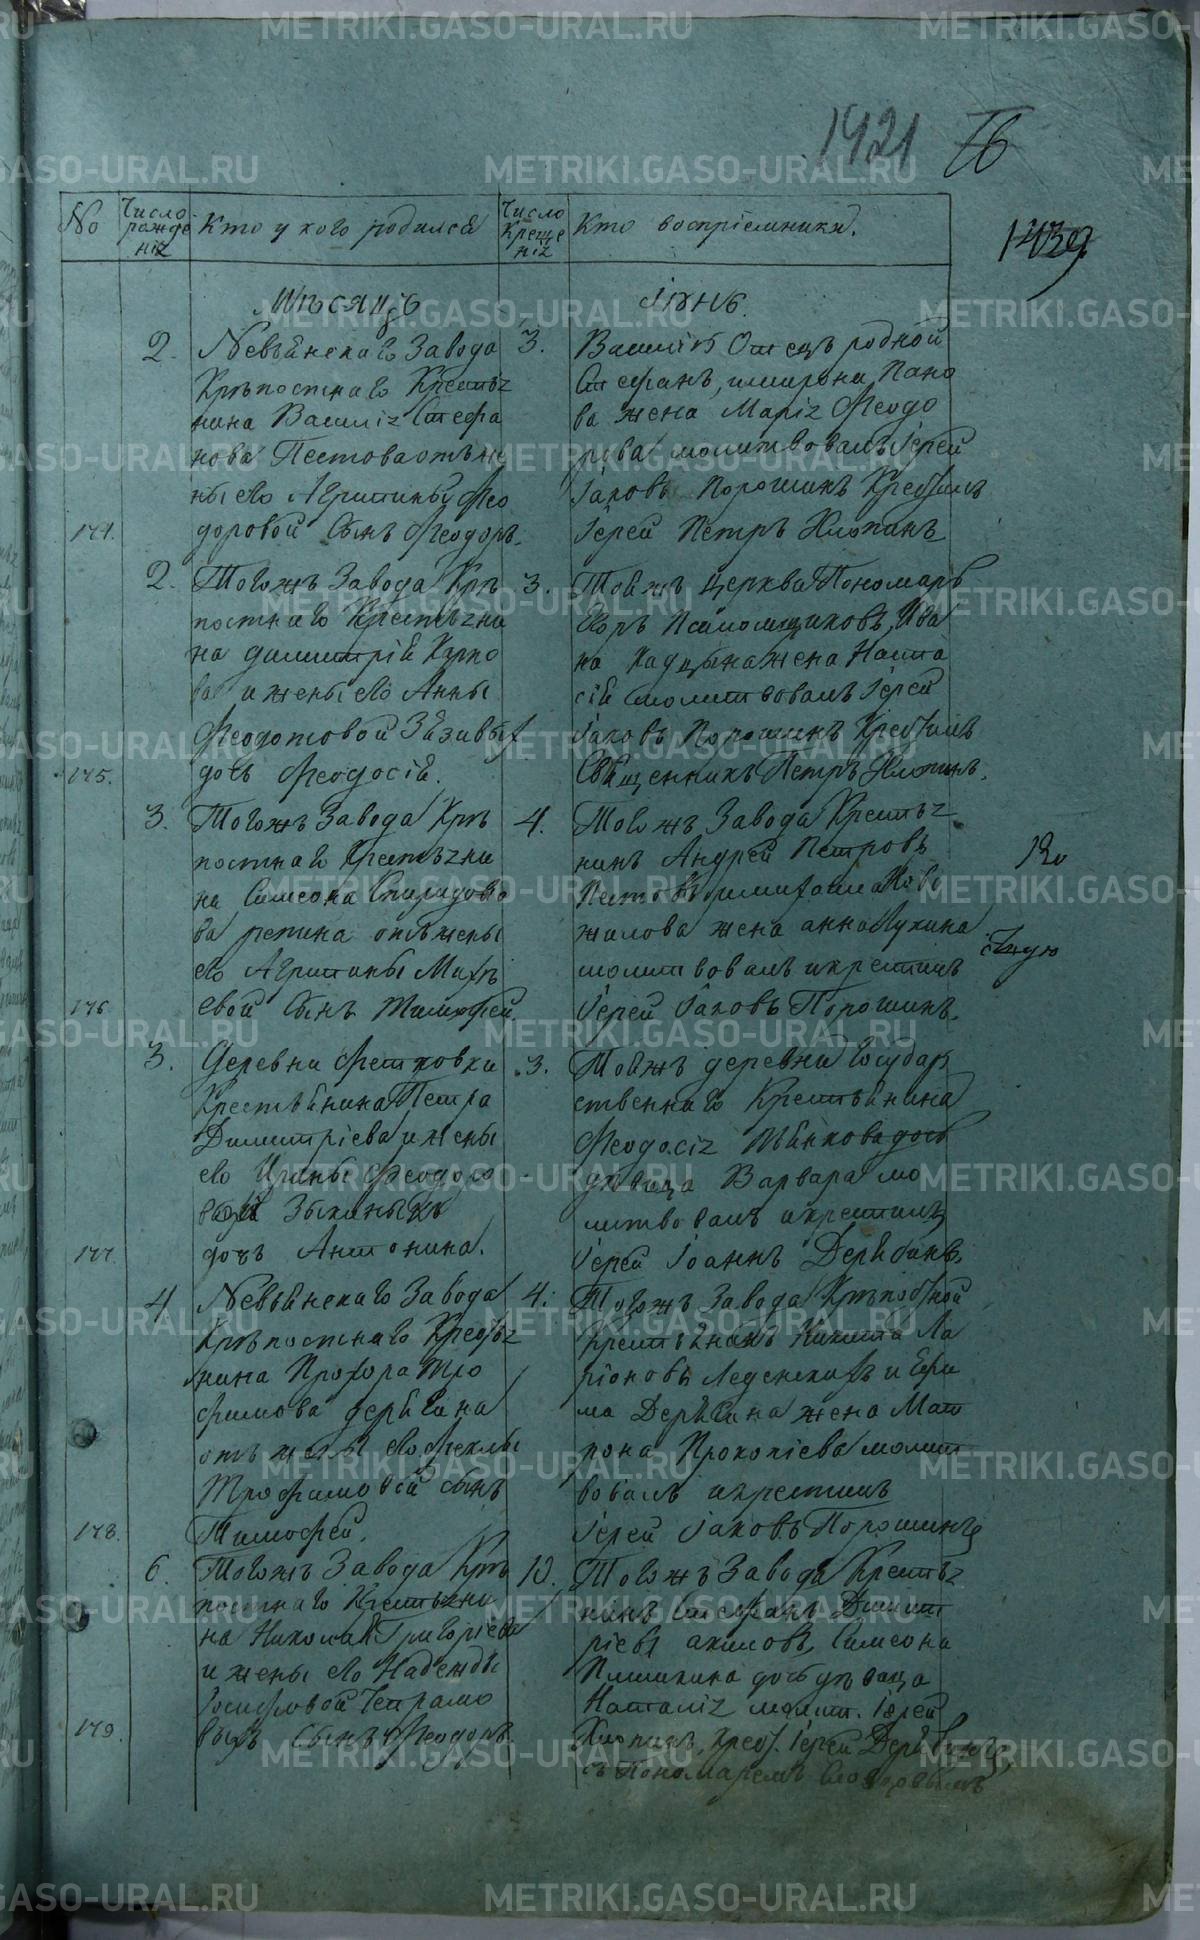 1421 76
1439
No
Число рождения
Кто у кого родился
Число крещения
Кто воспрiемники.
Мѣсяцъ
Iюнь.
2.
Невьянскаго Завода
Крѣпостнаго Крестья
нина Василiя Стефа
нова Пестова отъ же
ны его Агрипины Фео
174.
доровой Сынъ Феодоръ.
3.
Василiй Отецъ родной
Стефанъ, Мирона Пано
ва жена Марiя Феодо
рова молитвовалъ Iерей
Iаковъ Порошинъ Крестилъ
Iерей Петръ Хлопинъ
2.
Тогожъ Завода Крѣ
постнаго Крестьяни
на Димитрiй
ва и жены его Анны
Феодотовой
175.
дочь Феодосiй.
3.
Тойжъ Церкви Пономарь
Егоръ Псаломщиковъ, Ива
на жена Наста
сiй молитвовалъ Iерей
Iаковъ Порошинъ Крестилъ
Священникъ Петръ Хлопинъ.
3.
Тогожъ Завода Крѣ
постнаго Крестьяни
на Симеона Спиридоно
ва репина отъ жены
его Агрипины Матвѣ
176
евой Сынъ Тимофей.
4.
Тогожъ Завода Крестья
нинъ Андрей Петровъ
Пестовъ, Михаила Ново
жилова жена анна Лукина
молитвовалъ и крестилъ
Iерей Iаковъ Порошинъ.
3.
Деревни Фетковки
Крестьянина Петра
Димитрiева и жены
его Ирины Феодоро
вой Зыкиныхъ
177.
дочь Антонина.
3.
Тойжъ деревни Государ
ственнаго Крестьянина
Феодосiя Пьянкова дочь
дѣвица Варвара мо
литвовалъ и крестилъ
Iерей Iоаннъ Дерябинъ.
4
Невьянскаго Завода
Крѣпостнаго Крестья
нина Прохора Тро
фимова дерябина
отъ жены его Феклы
Трофимовой сынъ
178.
Тимофей.
4.
Тогожъ Завода Крѣпостной
Крестьянинъ Никита Ла
рiоновъ Леденскихъ и Ефи
ма Дерябина жена Мат
рона Прокопiева молит
вовалъ и крестилъ
Iерей Iаковъ Порошинъ
6.
Тогожъ Завода Крѣ
постнаго Крестьяни
на Николая Григорiева
и жены его Надежды
Iосифовой
179.
выхъ Сынъ Феодоръ.
10.
Тогожъ Завода Крестья
нинъ Стефанъ Димит
рiевъ акимовъ, Симеона
Пишихина дочь дѣвица
Наталiя молит. Iерей
Хлопинъ, крест. Iерей Дерябинъ
съ Пономаремъ
METRIKI.GASO-URAL.RU